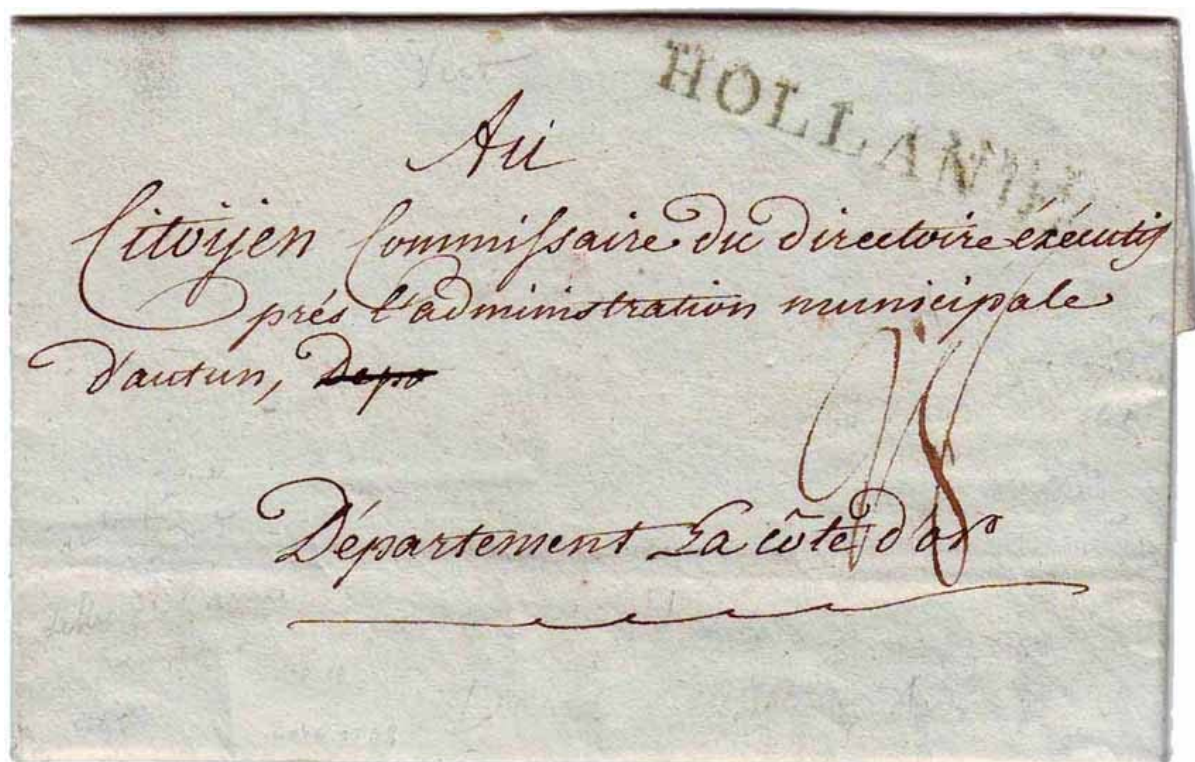 HOLLANDE
Au
Citoyen Commissaire du directoire éxécutif
prés l'administration municipale
d'autun, Depo
Département La côte d'or